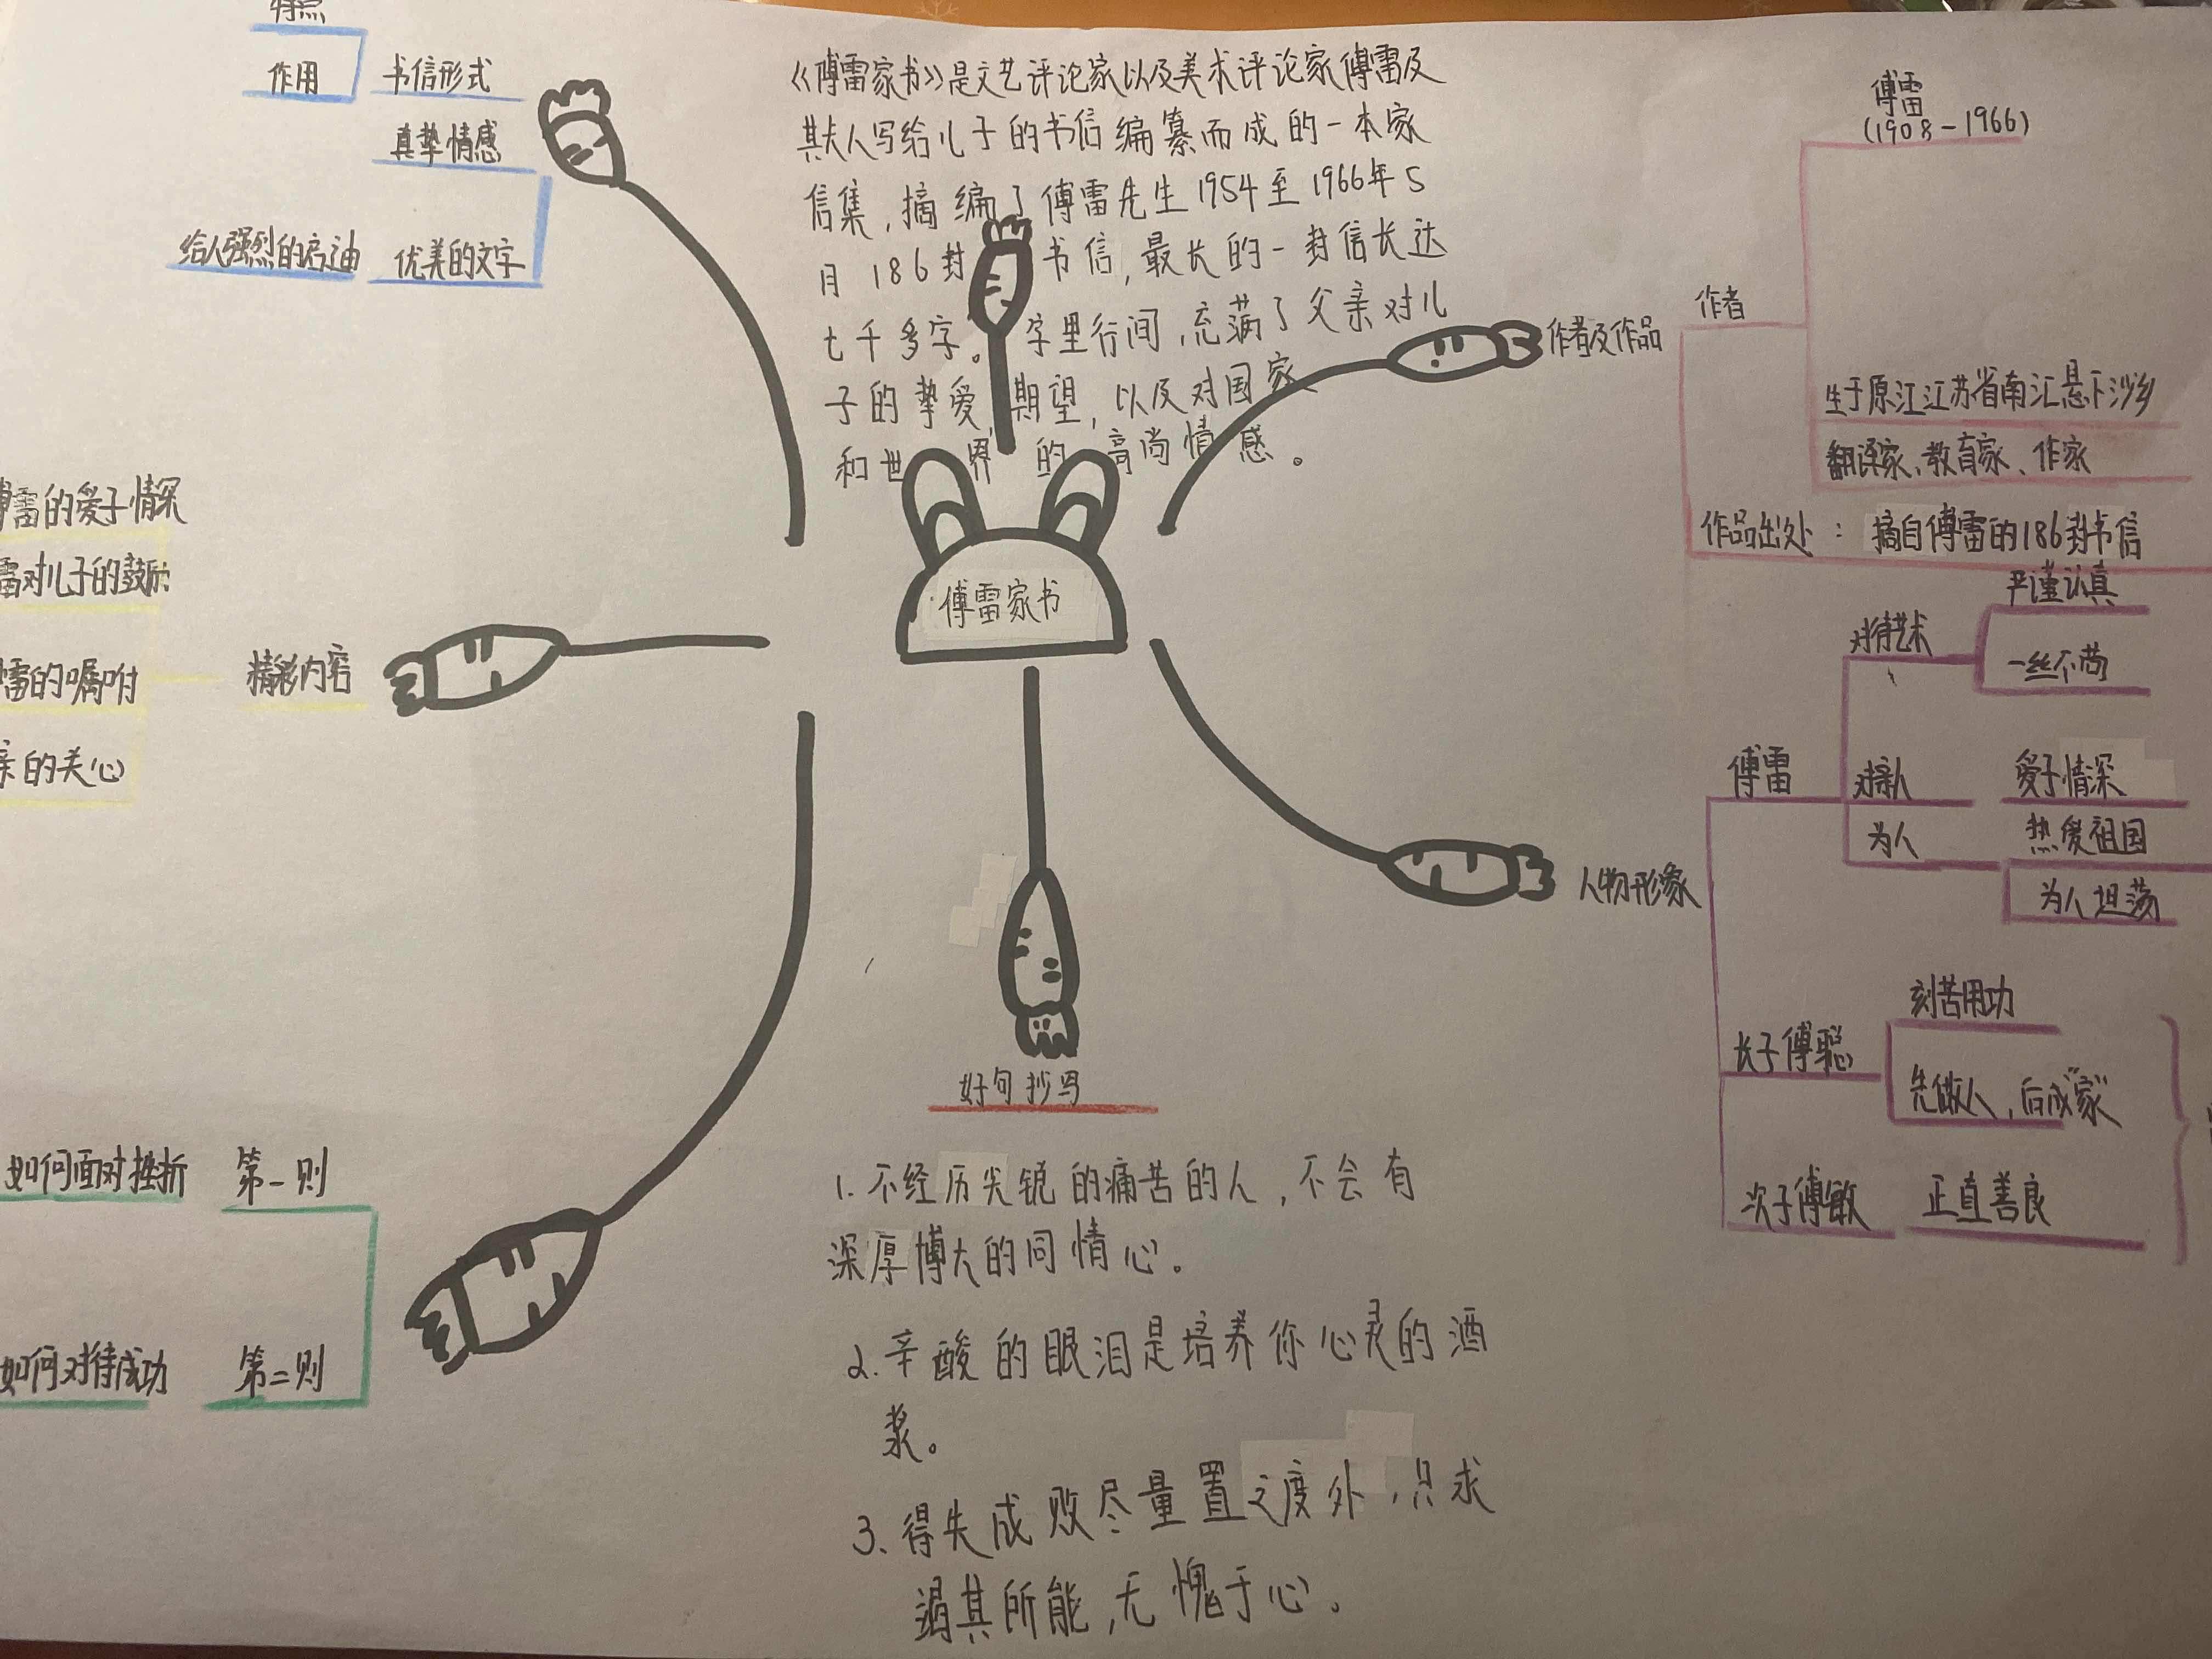 特点
作用
书信形式
真挚情感
给人强烈的启迪
优美的文字
《傅雷家书》是文艺评论家以及美术评论家傅雷及
其夫人写给儿子的书信编纂而成的一本家
信集，摘编了傅雷先生1954至1966年5
月186封书信，最长的一封信长达
七千多字。字里行间，充满了父亲对儿
子的挚爱，期望，以及对国家
和世界的高尚情感。
傅雷家书
作者及作品
作者
傅雷
(1908-1966)
生于原江江苏省南汇县下沙乡
翻译家、教育家、作家
作品出处：摘自傅雷的186封书信
人物形象
傅雷
对待艺术
严谨认真
一丝不苟
对亲人
爱子情深
为人
热爱祖国
为人坦荡
长子傅聪
刻苦用功
先做人，后成"家"
次子傅敏
正直善良
雷的爱子情深
雷对儿子的鼓励
雷的嘱咐
亲的关心
精彩内容
如何面对挫折
第一则
如何对待成功
第二则
好句抄写
1.不经历尖锐的痛苦的人，不会有
深厚博大的同情心。
2.辛酸的眼泪是培养你心灵的酒
浆。
3、得失成败尽量置之度外，只求
竭其所能，无愧于心。